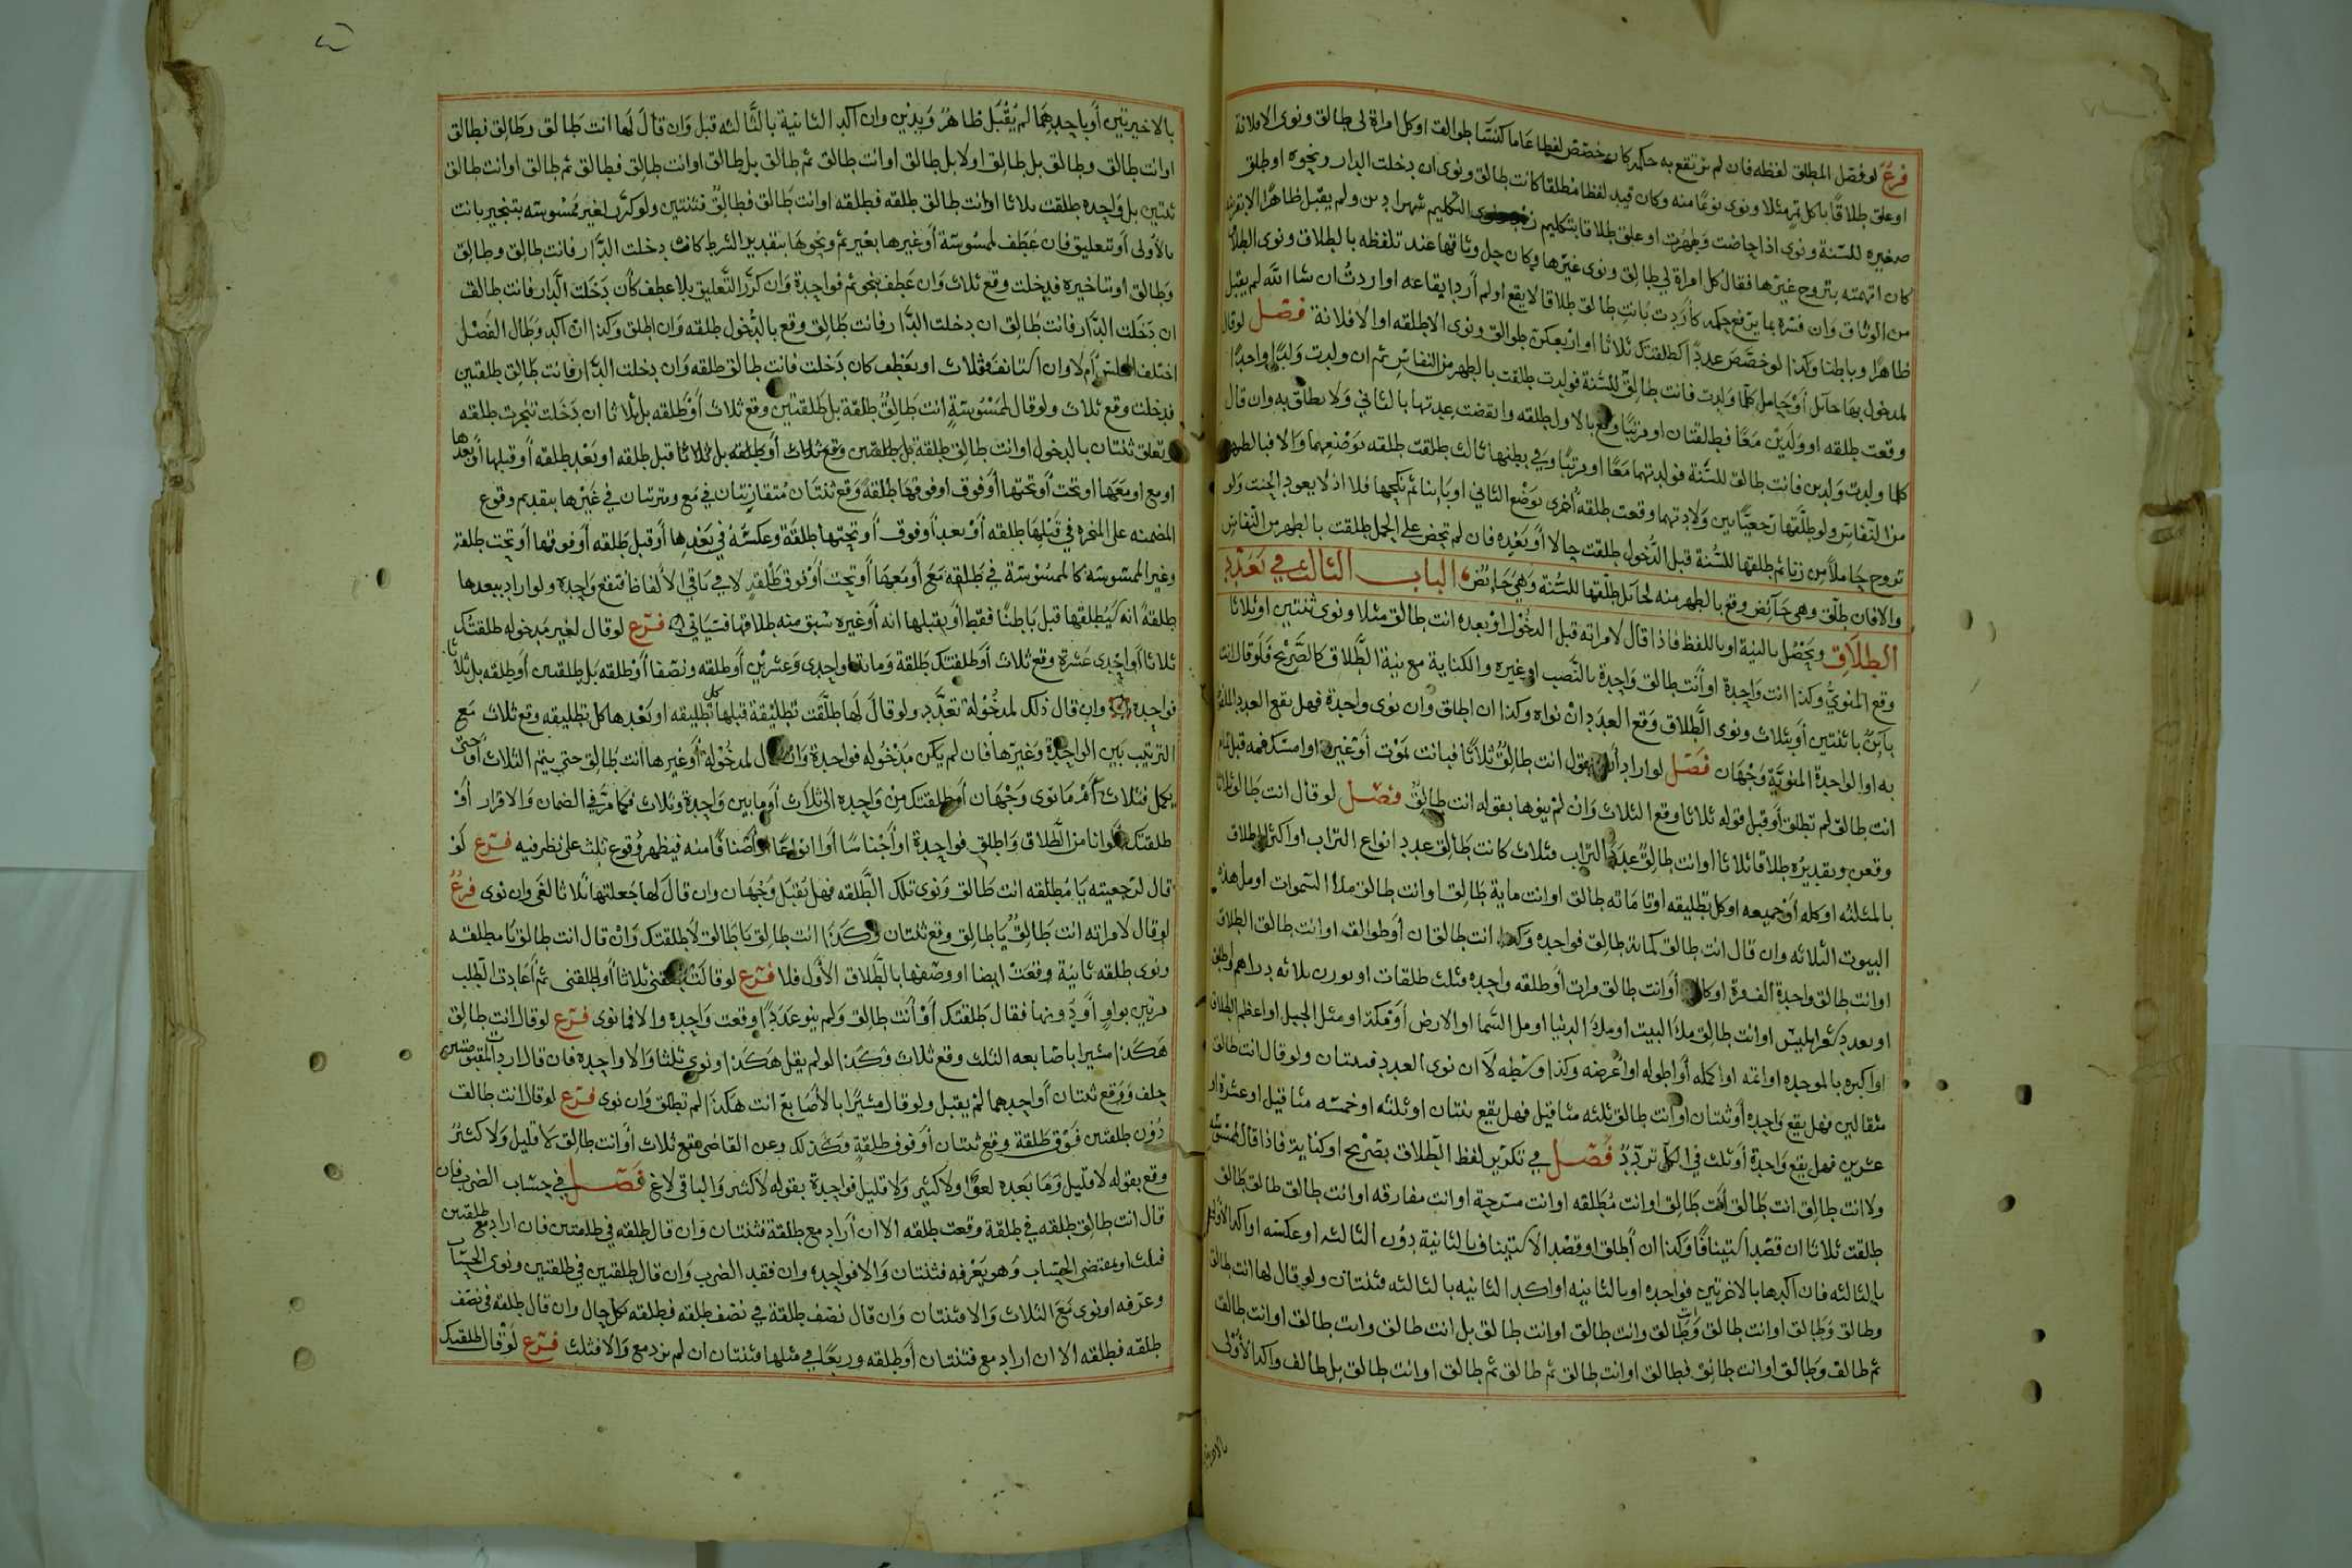 فرع لو فصل المطلق لفظه فان لم يرتفع به حكمه كان خصص لفظا عاما كنسا طوالق او كل امراة لي طالق ونوى الا فلانة
او علق طلاقا باكل تمر مثلا ونوى نوعا منه وكان قيد لفظا مطلقا كانت طالق ونوى ان دخلت الدار ونحوه او طلق
صغيره للسنة ونوى اذا حاضت وطهرت او علق طلاقا بتكليم ونوى التكليم شهرا دين ولم يقبل ظاهرا الا بقرينة
كان اتهمته بتزوج غيرها فقال كل امراة لي طالق ونوى غيرها وكان حل وثاقها عند تلفظه بالطلاق ونوى الطلاق
من الوثاق وان فسره بما يرفع حكمه كاردت بانت طالق طلاقا لا يقع او لم أرد ايقاعه او اردت ان شا الله لم يقبل
ظاهرا وباطنا وكذا لو خصص عددا كطلقتك ثلاثا او اربعكن طوالق ونوى الا طلقه او الا فلانة فصل لو قال
لمدخول بها حائل أو حامل كلما ولدت فانت طالق للسنة فولدت طلقت بالطهر من النفاس ثم ان ولدت ولدا واحدا
وقعت طلقه او ولدين معا فطلقتان او مرتبا وقع بالاول طلقه وانقضت عدتها بالثاني ولا يطلق به وان قال
كلما ولدت ولدين فانت طالق للسنة فولدتهما معا او مرتبا وفي بطنها ثالث طلقت طلقه بوضعهما والا فبالطهر
من النفاس ولو طلقها رجعيا بين ولادتهما وقعت طلقة أخرى بوضع الثاني او باينا ثم نكحها فلا اذ لا يعود الحنث ولو
تزوج حاملا من زنا ثم طلقها للسنة قبل الدخول طلقت حالا أو بعده فان لم تحض على الحمل طلقت بالطهر من النفاس
والا فان طلق وهي حائض وقع بالطهر منه لحائل طلقها للسنة وهي حائض الباب الثالث في تعدد
الطلاق ويحصل بالنية او باللفظ فاذا قال لامراته قبل الدخول او بعده انت طالق مثلا ونوى ثنتين او ثلاثا
وقع المنوي وكذا انت واحدة او أنت طالق واحدة بالنصب او غيره والكناية مع نية الطلاق كالصريح فلو قال انت
باين بائنتين أو بثلاث ونوى الطلاق وقع العدد ان نواه وكذا ان اطلق وان نوى واحدة فهل يقع العدد الملفوظ
به او الواحدة المنوية وجهان فصل لو اراد أن يقول انت طالق ثلاثا فماتت بموت أو غيره او امسك فمه قبل تمام
انت طالق لم تطلق أو قبل قوله ثلاثا وقع الثلاث وان لم ينوها بقوله انت طالق فصل لو قال انت طالق ثلاثا
وقعن وتقديره طلاقا ثلاثا او انت طالق عدد التراب فثلاث كانت طالق عدد انواع التراب او اكثر الطلاق
بالمثلثه او كله أو جميعه او كل تطليقه او انت ماية طالق او انت طالق ملأ السموات او مل هذه
البيوت الثلاثه وان قال انت طالق كمائة طالق فواحده وكذا انت طالقان أو طوالق او انت طالق الطلاق
او انت طالق واحدة الف مرة أو أنت طالق مرات أو طلقه واحده فثلث طلقات او بوزن ثلاثه دراهم
او بعدد شعر ابليس او انت طالق ملأ البيت او ملأ الدنيا او مل السما او الارض أو مكة او مثل الجبل او اعظم الطلاق
او اكبره بالموحده او اتمه او اكمله أو اطوله او اعرضه وكذا وسطه لا ان نوى العدد فثنتان ولو قال انت طالق
مثقالين فهل يقع واحده أو ثنتان او انت طالق ثلثه مثاقيل فهل يقع ثنتان او ثلثه او خمسه مثاقيل او عشرة او
عشرين فهل يقع واحدة أو ثلث في الكل تردد فصل في تكرير لفظ الطلاق بصريح او كناية فاذا قال لممسوسته
ولا انت طالق انت طالق انت طالق او انت مطلقه او انت مسرحة او انت مفارقه او انت طالق طالق طالق
طلقت ثلاثا ان قصد استينافا وكذا ان أطلق او قصد الاستيناف بالثانية دون الثالثه او عكسه او اكد الاولى
بالثالثه فان اكدها بالاخرتين فواحده او بالثانيه او اكد الثانيه بالثالثه فثنتان ولو قال لها انت طالق
وطالق وطالق او انت طالق وانت طالق وانت طالق او انت طالق بل انت طالق وانت طالق او انت طالق
ثم طالق وطالق او انت طالق فطالق او انت طالق ثم طالق ثم طالق او انت طالق بل طالق واكد الأولى
بالاخيرتين
بالاخيرتين أو باحدهما لم يقبل ظاهر ويدين وان اكد الثانية بالثالثه قبل وان قال لها انت طالق وطالق فطالق
او انت طالق وطالق بل طالق او لا بل طالق او انت طالق ثم طالق بل طالق او انت طالق فطالق ثم طالق او انت طالق
ثنتين بل واحده طلقت ثلاثا او انت طالق طلقه فطلقه او انت طالق فطالق فثنتين ولو كرر لغير ممسوسته بتنجيز بانت
بالأولى أو تعليق فان عطف لممسوسة أو غيرها بغير ثم ونحوها بتقديم الشرط كان دخلت الدار فانت طالق وطالق
وطالق او تاخيره فدخلت وقع ثلاث وان عطف بنحو ثم فواحدة وان كرر التعليق بلا عطف كأن دخلت الدار فانت طالق
ان دخلت الدار فانت طالق ان دخلت الدار فانت طالق وقع بالدخول طلقه وان اطلق وكذا ان اكد وطال الفصل
اختلف المجلس أم لا وان استانف فثلاث او بعطف كان دخلت فانت طالق طلقه وان دخلت الدار فانت طالق طلقتين
فدخلت وقع ثلاث ولو قال لممسوسة انت طالق طلقة بل طلقتين وقع ثلاث أو طلقه بل ثلاثا ان دخلت تنجزت طلقه
وتعلق ثنتان بالدخول او انت طالق طلقة بل طلقتين وقع ثلاث أو طلقه بل ثلاثا قبل طلقه او بعد طلقه أو قبلها أو بعدها
او مع او معها او تحت أو تحتها أو فوق او فوقها طلقة وقع ثنتان متقارنتان في مع ومرتبتان في غيرها بتقديم وقوع
المضمنه على المنجزه في قبلها طلقه أو بعد أو فوق أو تحتها طلقة وعكسه في بعدها أو قبل طلقه أو فوقها أو تحت طلقة
وغير الممسوسة كالممسوسة في طلقه مع أو معها أو تحت أو فوق طلقه لا في باقي الألفاظ فتقع واحده ولو اراد ببعدها
طلقة انه سيطلقها قبل باطنا فقط أو بقبلها انه أو غيره سبق منه طلاقها فسياتي فرع لو قال لغير مدخوله طلقتك
ثلاثا أو احدى عشرة وقع ثلاث أو طلقتك طلقة ومائة او احدى وعشرين أو طلقه ونصفا أو طلقه بل طلقتين أو طلقه بل ثلاثا
فواحده وان قال ذلك لمدخولة تعدد ولو قال لها طلقت تطليقة قبلها كل تطليقه او بعدها كل تطليقه وقع ثلاث مع
الترتيب بين الواحدة وغيرها فان لم يكن مدخوله فواحدة وان قال لمدخولة أو غيرها انت طالق حتى يتم الثلاث او حتى
يكمل فثلاث أم ما نوى وجهان أو طلقتك من واحده الى ثلاث أو ما بين واحدة وثلاث فكما مر في الضمان والاقرار أو
طلقتك الوانا من الطلاق واطلق فواحدة او أجناسا أو انواعا او أصنافا منه فيظهر وقوع ثلث على نظر فيه فرع لو
قال لرجعيته يا مطلقه انت طالق ونوى تلك الطلقه فهل يقبل وجهان وان قال لها جعلتها ثلاثا لغى وان نوى فرع
لو قال لامراته انت طالق يا طالق وقع ثنتان وكذا انت طالق يا طالق لا طلقتك وان قال انت طالق يا مطلقه
ونوى طلقه ثانية وقعت ايضا او وصفها بالطلاق الأول فلا فرع لو قالت طلقني ثلاثا أو طلقني ثم أعادت الطلب
مرتين بواو أو دونها فقال طلقتك أو أنت طالق ولم ينو عددا وقعت واحدة والا فما نوى فرع لو قال انت طالق
هكذا مشيرا باصابعه الثلث وقع ثلاث وكذا لو لم يقل هكذا ونوى ثلثا والا واحده فان قال اردت المقبوضتين
حلف ووقع ثنتان أو احدهما لم يقبل ولو قال مشيرا بالأصابع انت هكذا لم تطلق وان نوى فرع لو قال انت طالق
دون طلقتين فوق طلقة وقع ثنتان أو فوق طلقة وكذلك وعن القاضي يقع ثلاث أو انت طالق لا قليل ولا كثير
وقع بقوله لا قليل وما بعده لغو او لا كثير ولا قليل فواحدة بقوله لا كثير والباقي لاغ فصل في حساب الضرب فان
قال انت طالق طلقه في طلقة وقعت طلقه الا ان أراد مع طلقة فثنتان وان قال طلقه في طلقتين فان اراد مع طلقتين
فثلث او بمقتضى الحساب وهو يعرفه فثنتان والا فواحدة وان فقد الضرب وان قال طلقتين في طلقتين ونوى الحساب
وعرفه او نوى مع الثلاث والا فثنتان وان قال نصف طلقة في نصف طلقه فطلقه بكل حال وان قال طلقه في نصف
طلقه فطلقه الا ان اراد مع فثنتان أو طلقه وربعا في مثلها فثنتان ان لم يرد مع والا فثلث فرع لو قال طلقتك